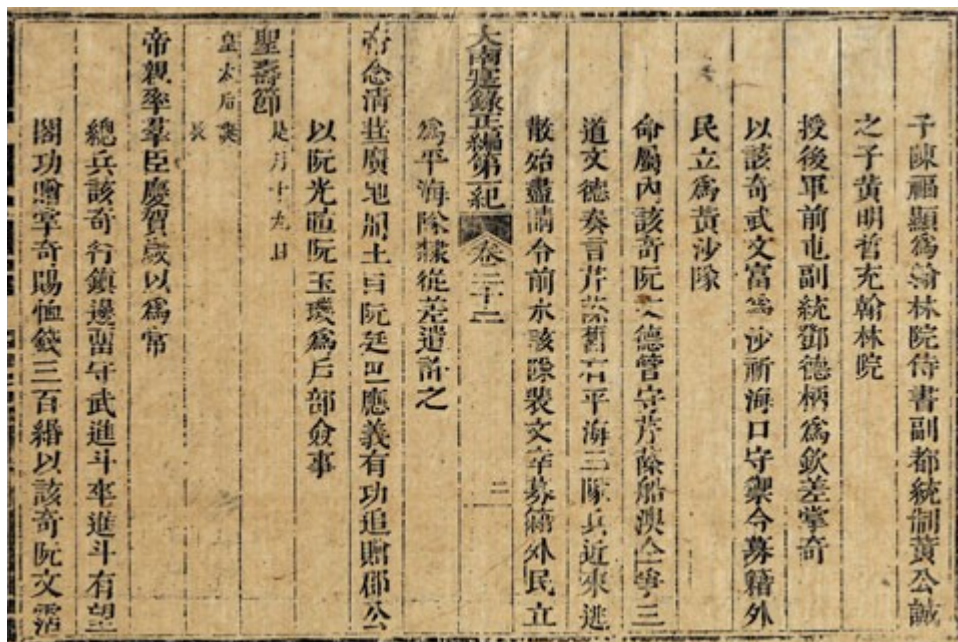 子陳福顯爲翰林院侍書副都統制黃公誠
之子黃明哲充翰林院
授後軍前屯副統鄧德柄爲欽差掌奇
以該奇武文富爲沙祈海口守禦令募籍外
民立爲黃沙隊
命屬內該奇阮文德管守芹蒢船澳仝寧三
道文德奏言芹蒢舊有平海三隊兵近來逃
散殆盡請令前水該隊裴文辛募籍外民立
大南寔錄正編第一紀 卷二十二 二
爲平海除隸從差遣許之
帝念清葩廣地胡土目阮廷巴應義有功追贈郡公
以阮光暄阮玉璞爲戶部僉事
聖壽節 是月十九日
皇太后誕
長
帝親率羣臣慶賀歲以爲常
總兵該奇行鎮邊留守武進斗卒進斗有望
閣功贈掌奇賜恤錢三百緡以該奇阮文霑